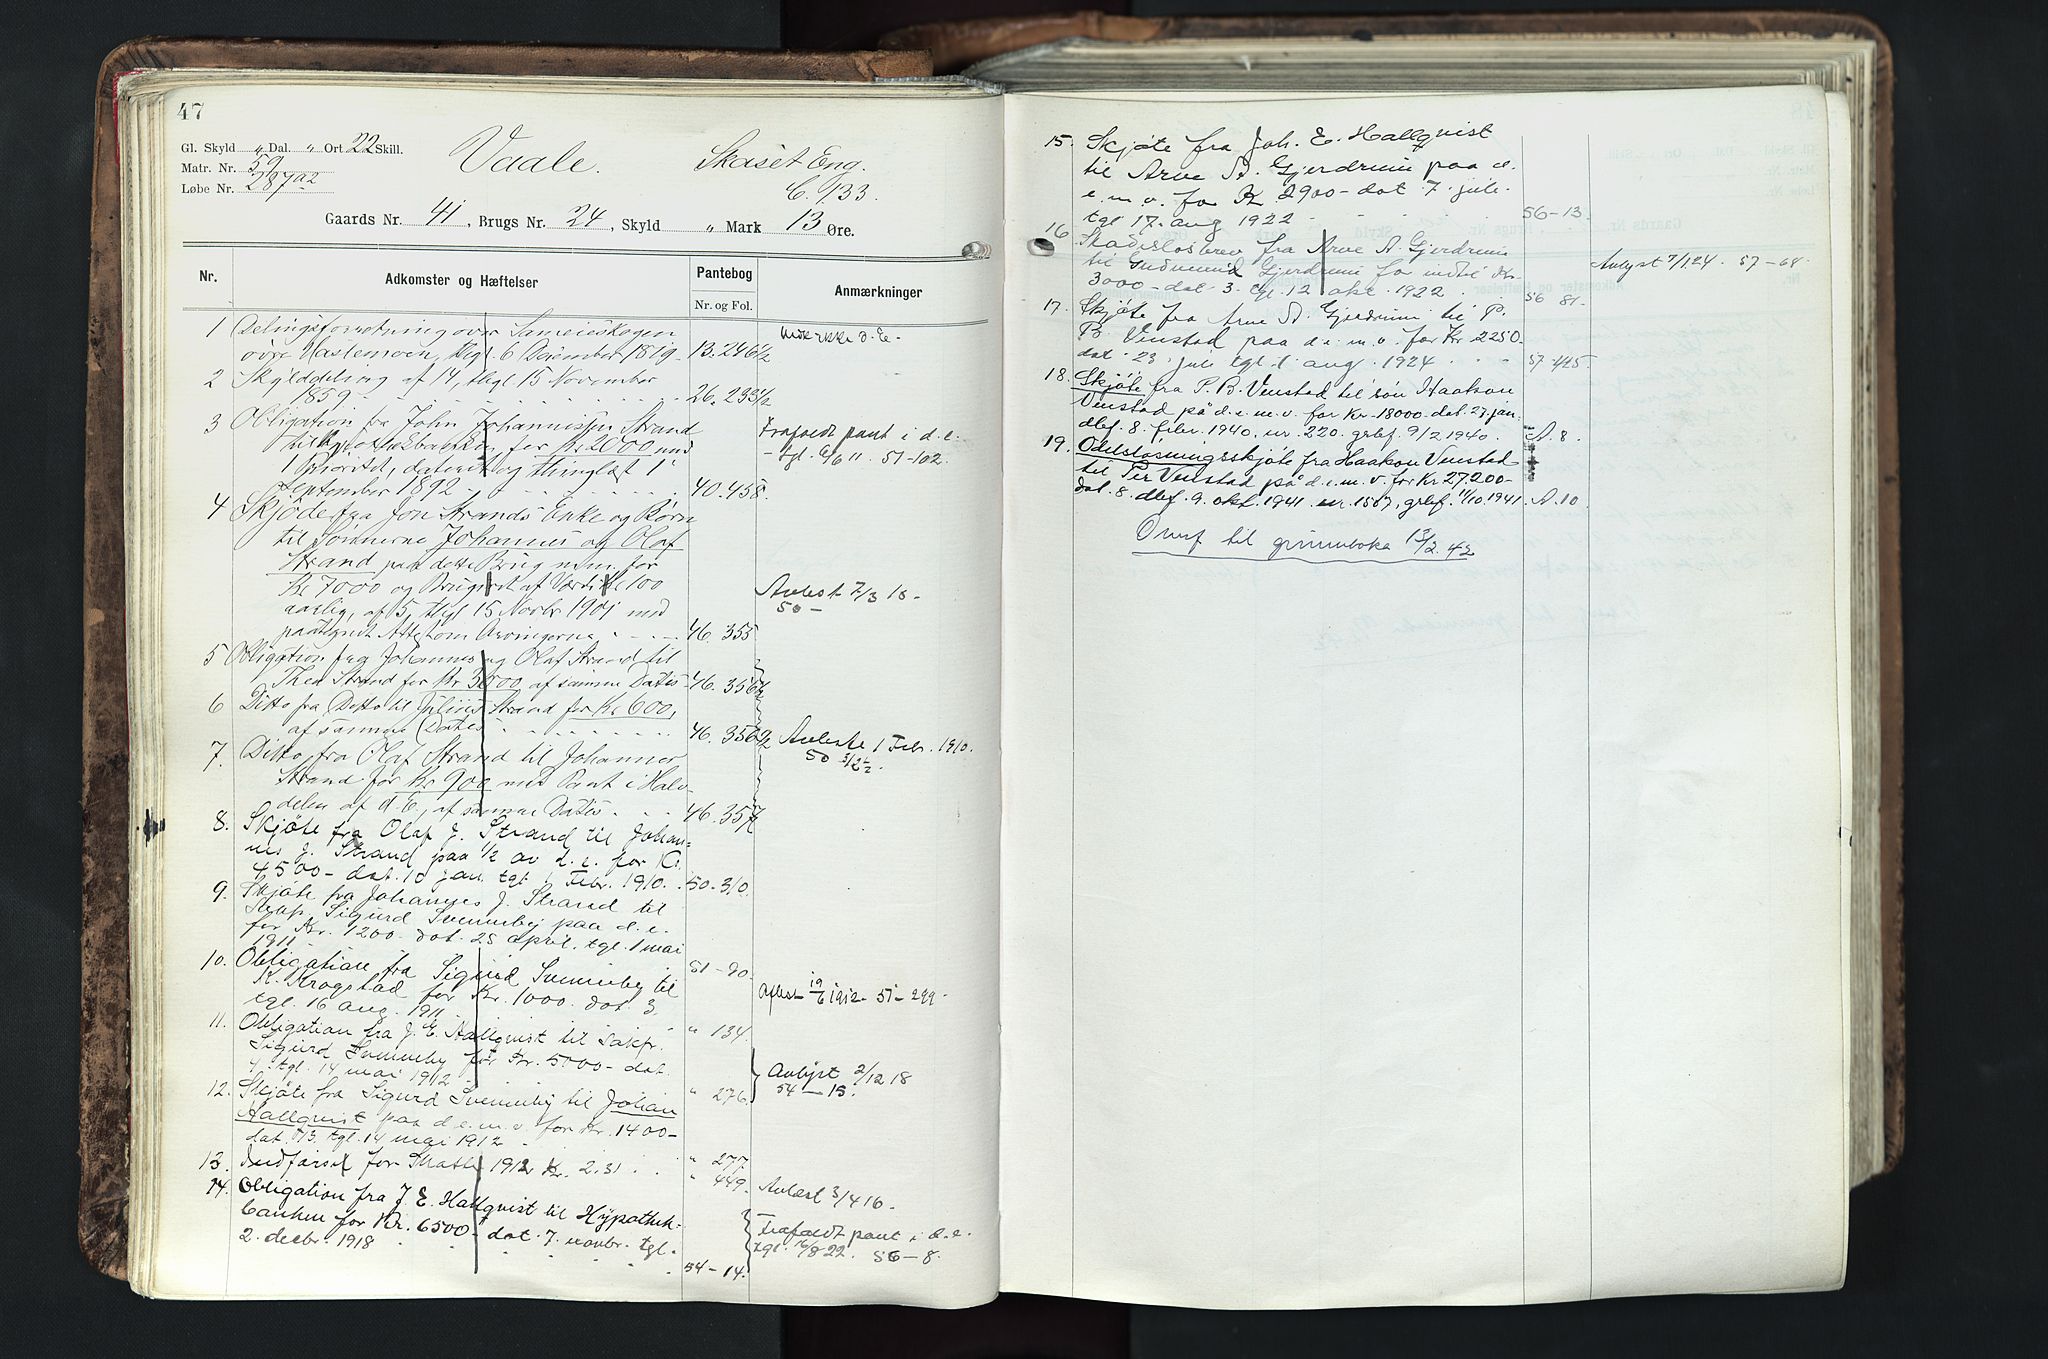 47
Gl. Skyld " Dal. " Ort 22 Skill.
Matr. Nr. 59
Løbe Nr. 287a2
Vaale. Skaset Eng.
Gaards Nr. 41, Brugs Nr. 24, Skyld " Mark 13 Øre.
Nr. Adkomster og Hæftelser Pantebog Anmærkninger
Nr. og Fol.
1 Delingsforretning over Sameieskogen
øvre Vastemoen, thgl. 6 December 1819 - 13. 246½
2 Skylddeling af 14, thgl 15 November
1859 - 26. 233½
3 Obligation fra John Johannessen Strand
til Hypothekbanken, for Kr. 2000 med
1 Prioritet, dateret og thinglæst 1
September 1892 - 40. 458.
Frafaldt pant i d. e.
- tgl. 6/6 11. 51-102.
4 Skjøde fra Jon Strands Enke og Børn
til Sønnerne Johannes og Olaf
Strand paa dette Brug m.m. for
Kr 7000 og Brugsret af Værdi Kr 100
aarlig, af 5, thgl 15 Novbr 1901 med
paategnet Attest om Arvingerne - 46. 355
Avlest 7/3 10 -
50 -
5 Obligation fra Johannes og Olaf Strand til
Thea Strand for Kr 3600 af samme Datis - 46. 356½
6 Ditto fra Ditto til Julius Strand for Kr 600,
af samme Datis - 46. 356½
Avleste 1 Febr. 1910.
7. Ditto, fra Olaf Strand til Johannes
Strand for Kr 900 med Pant i Halv-
delen af d. E., af samme Datis - 46. 357
8. Skjøte fra Olaf J. Strand til Johan-
nes J. Strand paa ½ av d. e. for Kr.
4500 - dat. 10 jan. tgl 1 Febr. 1910. 50-310.
9. Skjøte fra Johannes J. Strand til
Sigurd Svenneby paa d. e.
for Kr. 1200. dat. 25 april. tgl. 1 mai
1911 - 51-90
10. Obligation fra Sigurd Svenneby til
K. Krogstad for Kr. 1000. dat. 3.
tgl. 16 aug. 1911 " 134.
Aflest 19/6 1912 - 51-299 -
11. Obligation fra J. E. Hallqvist til sakfr.
Sigurd Svenneby for Kr. 5000 - dat.
4. tgl. 14 mai 1912 - " 276.
Avlyst 2/12 18
54 - 15.
12. Skjøte fra Sigurd Svenneby til Johan
Hallqvist paa d. e. m. v. for Kr. 1400 -
dat. tgl. 14 mai 1912 " 277.
13. Indførsel for Skatt 1912 Kr. 2.31 " 449.
Avlæst 3/4 16.
14. Obligation fra J. E. Hallqvist til Hypothek-
banken for Kr. 6500 - dat. 7. novbr. tgl.
2. decbr. 1918 54-14.
Frafaldt pant i d. e.
tgl. 16/8 22. 56-8.
15. Skjøte fra Joh. E. Hallqvist
til Arve A. Gjerdrum paa d.
e. m. v. for Kr. 2900 - dat. 7. juli.
tgl 17. aug 1922 56-13.
16. Skadesløsbrev fra Arve A. Gjerdrum
til Gudmund Gjerdrum for indtil Kr.
3000 - dat. 3. tgl. 12 okt. 1922. 56 81 -
Avlyst 7/1 24. 57-68.
17. Skjøte fra Arve A. Gjerdrum til P.
B. Venstad paa d. e. m. v. for Kr 2250
dat. 23. juli tgl. 1 aug. 1924 57-425
18. Skjøte fra P. B. Venstad til søn Haakon
Venstad på d. e. m. v. for Kr. 18000. dat. 27. jan.
dbf. 8. febr. 1940. nr. 220. grbf. 9/2 1940. A. 8.
19. Odelsløsningsskjøte fra Haakon Venstad
til Per Venstad på d. e. m. v. for Kr 27.200 -
dat. 8. dbf. 9. okt. 1941. nr. 1567. grbf. 11/10. 1941. A. 10
Overf til grunnboka 13/2. 42